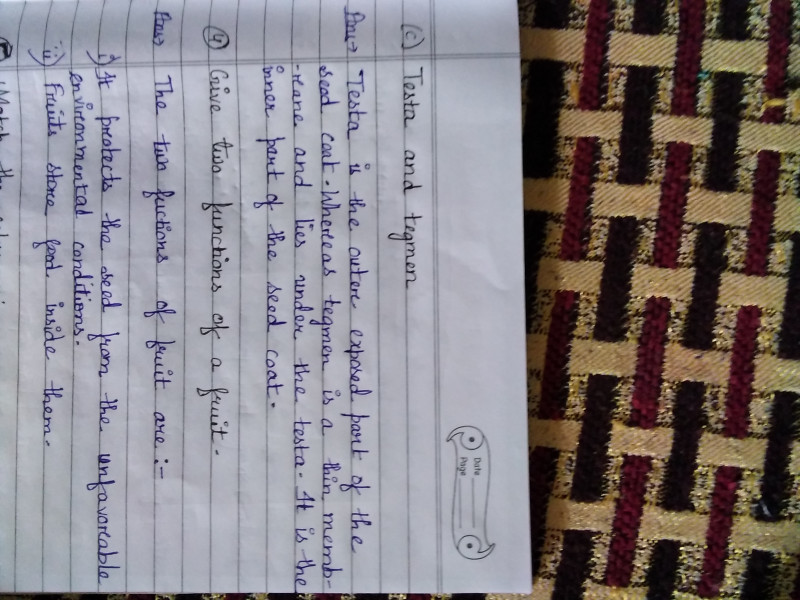 Date
Page
(c) Testa and tegmen
Ans→ Testa is the outer exposed part of the
seed coat. Whereas tegmen is a thin memb-
-rane and lies under the testa. It is the
inner part of the seed coat.
(4) Give two functions of a fruit.
Ans→ The two fuctions of fruit are :-
i) It protects the seed from the unfavourable
environmental conditions.
ii) Fruits store food inside them.
Match the